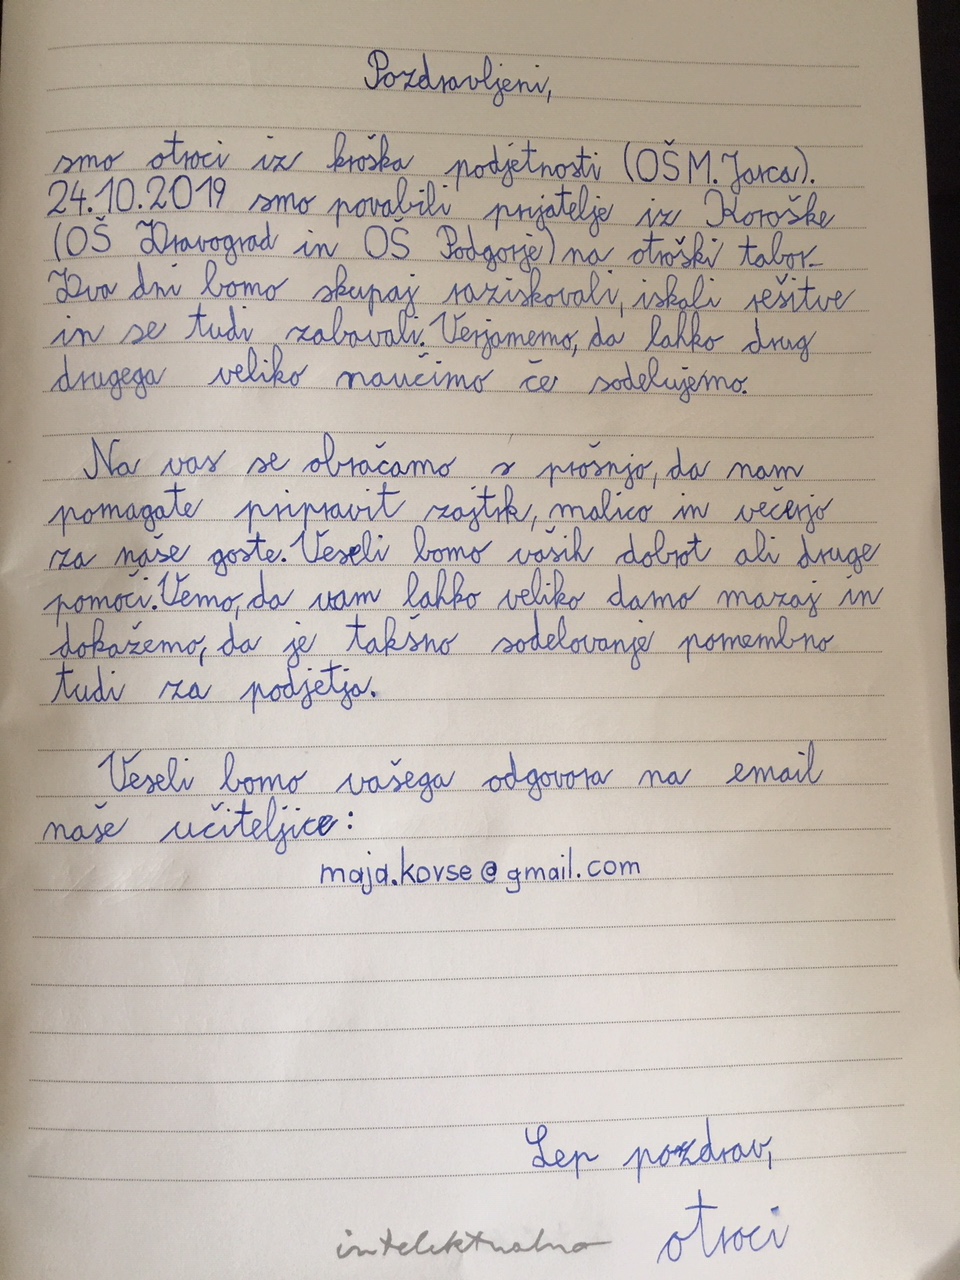 Pozdravljeni,
smo otroci iz kroška podjetnosti (OŠ M. Jarca).
24.10.2019 smo povabili prijatelje iz Koroške
(OŠ Dravograd in OŠ Podgorje) na otroški tabor.
Dva dni bomo skupaj raziskovali, iskali rešitve
in se tudi zabavali. Verjamemo, da lahko drug
drugega veliko naučimo če sodelujemo.
Na vas se obračamo s prošnjo, da nam
pomagate pripravit zajtrk, malico in večerjo
za naše goste. Veseli bomo vaših dobrot ali druge
pomoči. Vemo, da vam lahko veliko damo nazaj in
dokažemo, da je takšno sodelovanje pomembno
tudi za podjetja.
Veseli bomo vašega odgovora na email
naše učiteljice:
maja.kovse@gmail.com
Lep pozdrav,
otroci
intelektualno